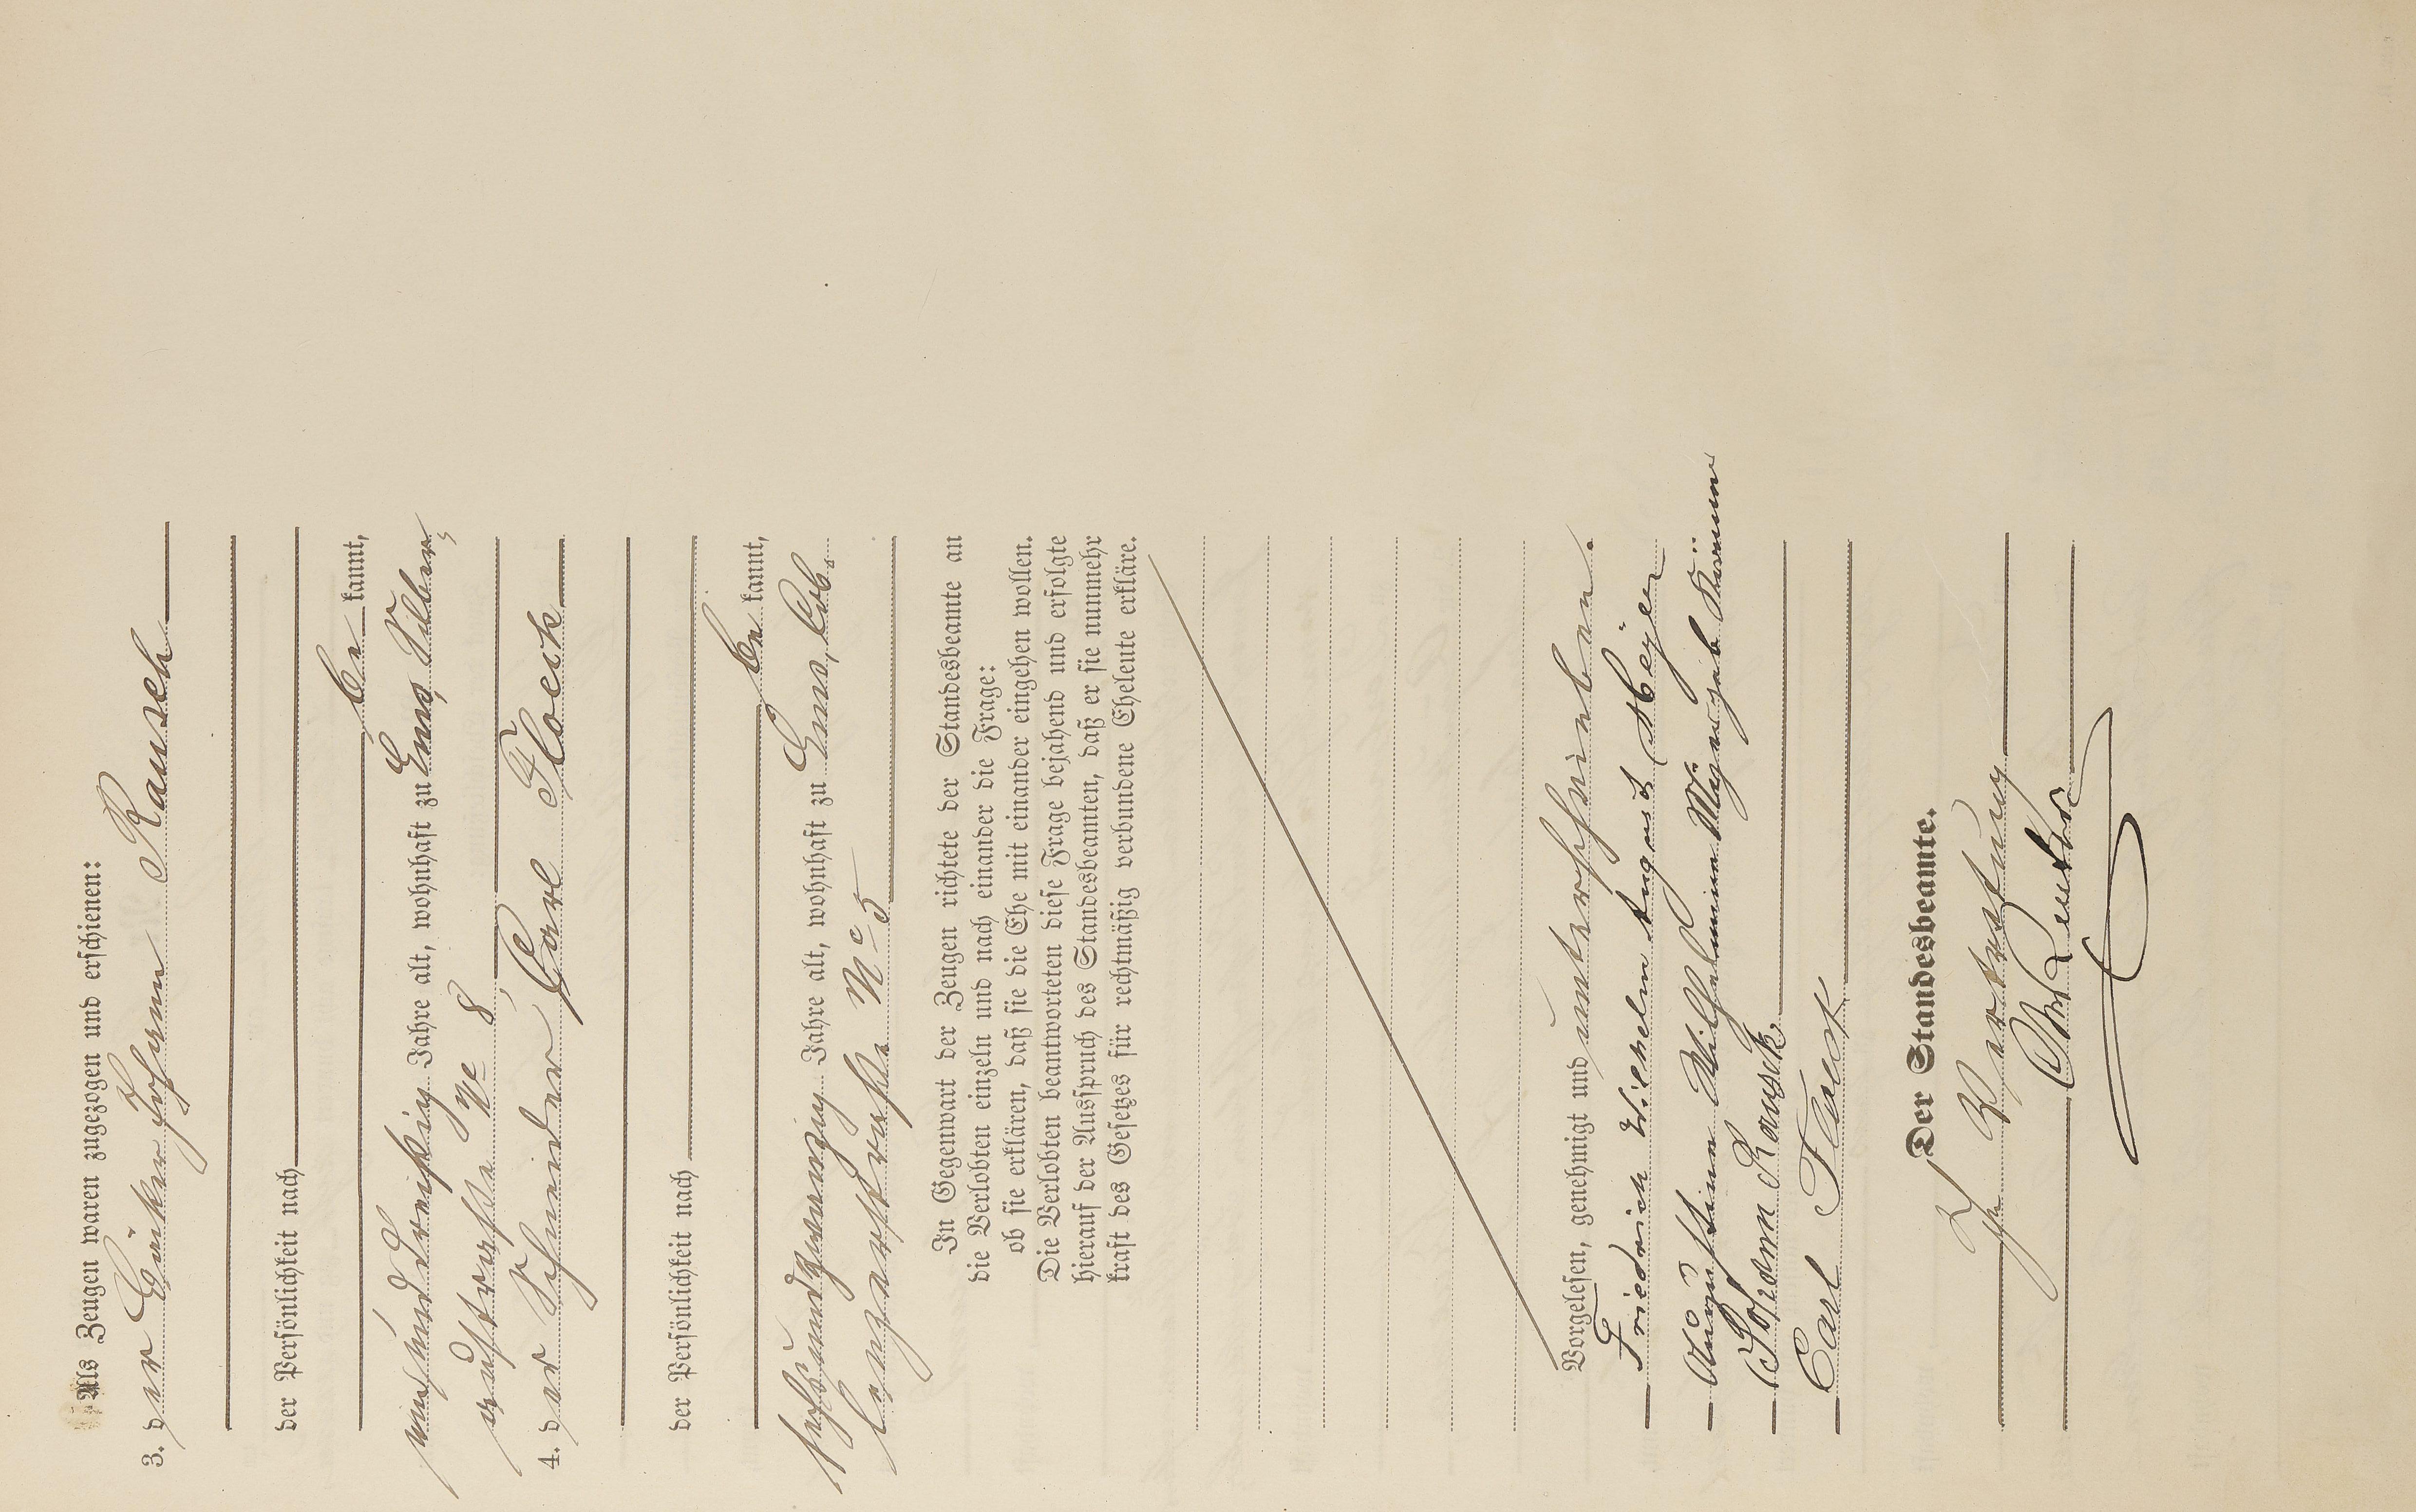 Als Zeugen waren zugezogen und erschienen:
3. der Johann Rausch
der Persönlichkeit nach
be kannt,
unddreißig Jahre alt, wohnhaft zu Ems, Silber,
austraße No 8,
4. der Schneider Carl Floeck
der Persönlichkeit nach
be kannt,
sechsundzwanzig Jahre alt, wohnhaft zu Ems, Cob,
lenzerstraße No 5
In Gegenwart der Zeugen richtete der Standesbeamte an
die Verlobten einzeln und nach einander die Frage:
ob sie erklären, daß sie die Ehe mit einander eingehen wollen.
Die Verlobten beantworteten diese Frage bejahend und erfolgte
hierauf der Ausspruch des Standesbeamten, daß er sie nunmehr
kraft des Gesetzes für rechtmäßig verbundene Eheleute erkläre.
Vorgelesen, genehmigt und unterschrieben.
Friedrich Wilhelm August Meyer
Wilhelmine Meyer geb.
Johann Rausch
Carl Floeck
Der Standesbeamte.
In Vertretung